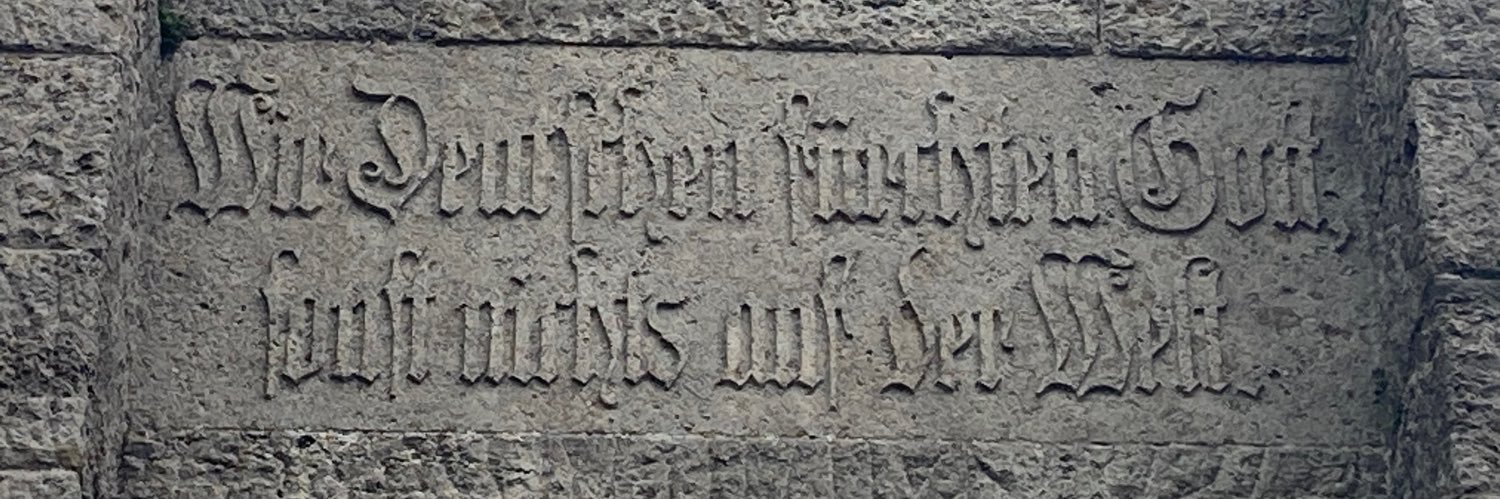 Wir Deutschen fürchten Gott,
sonst nichts auf der Welt.